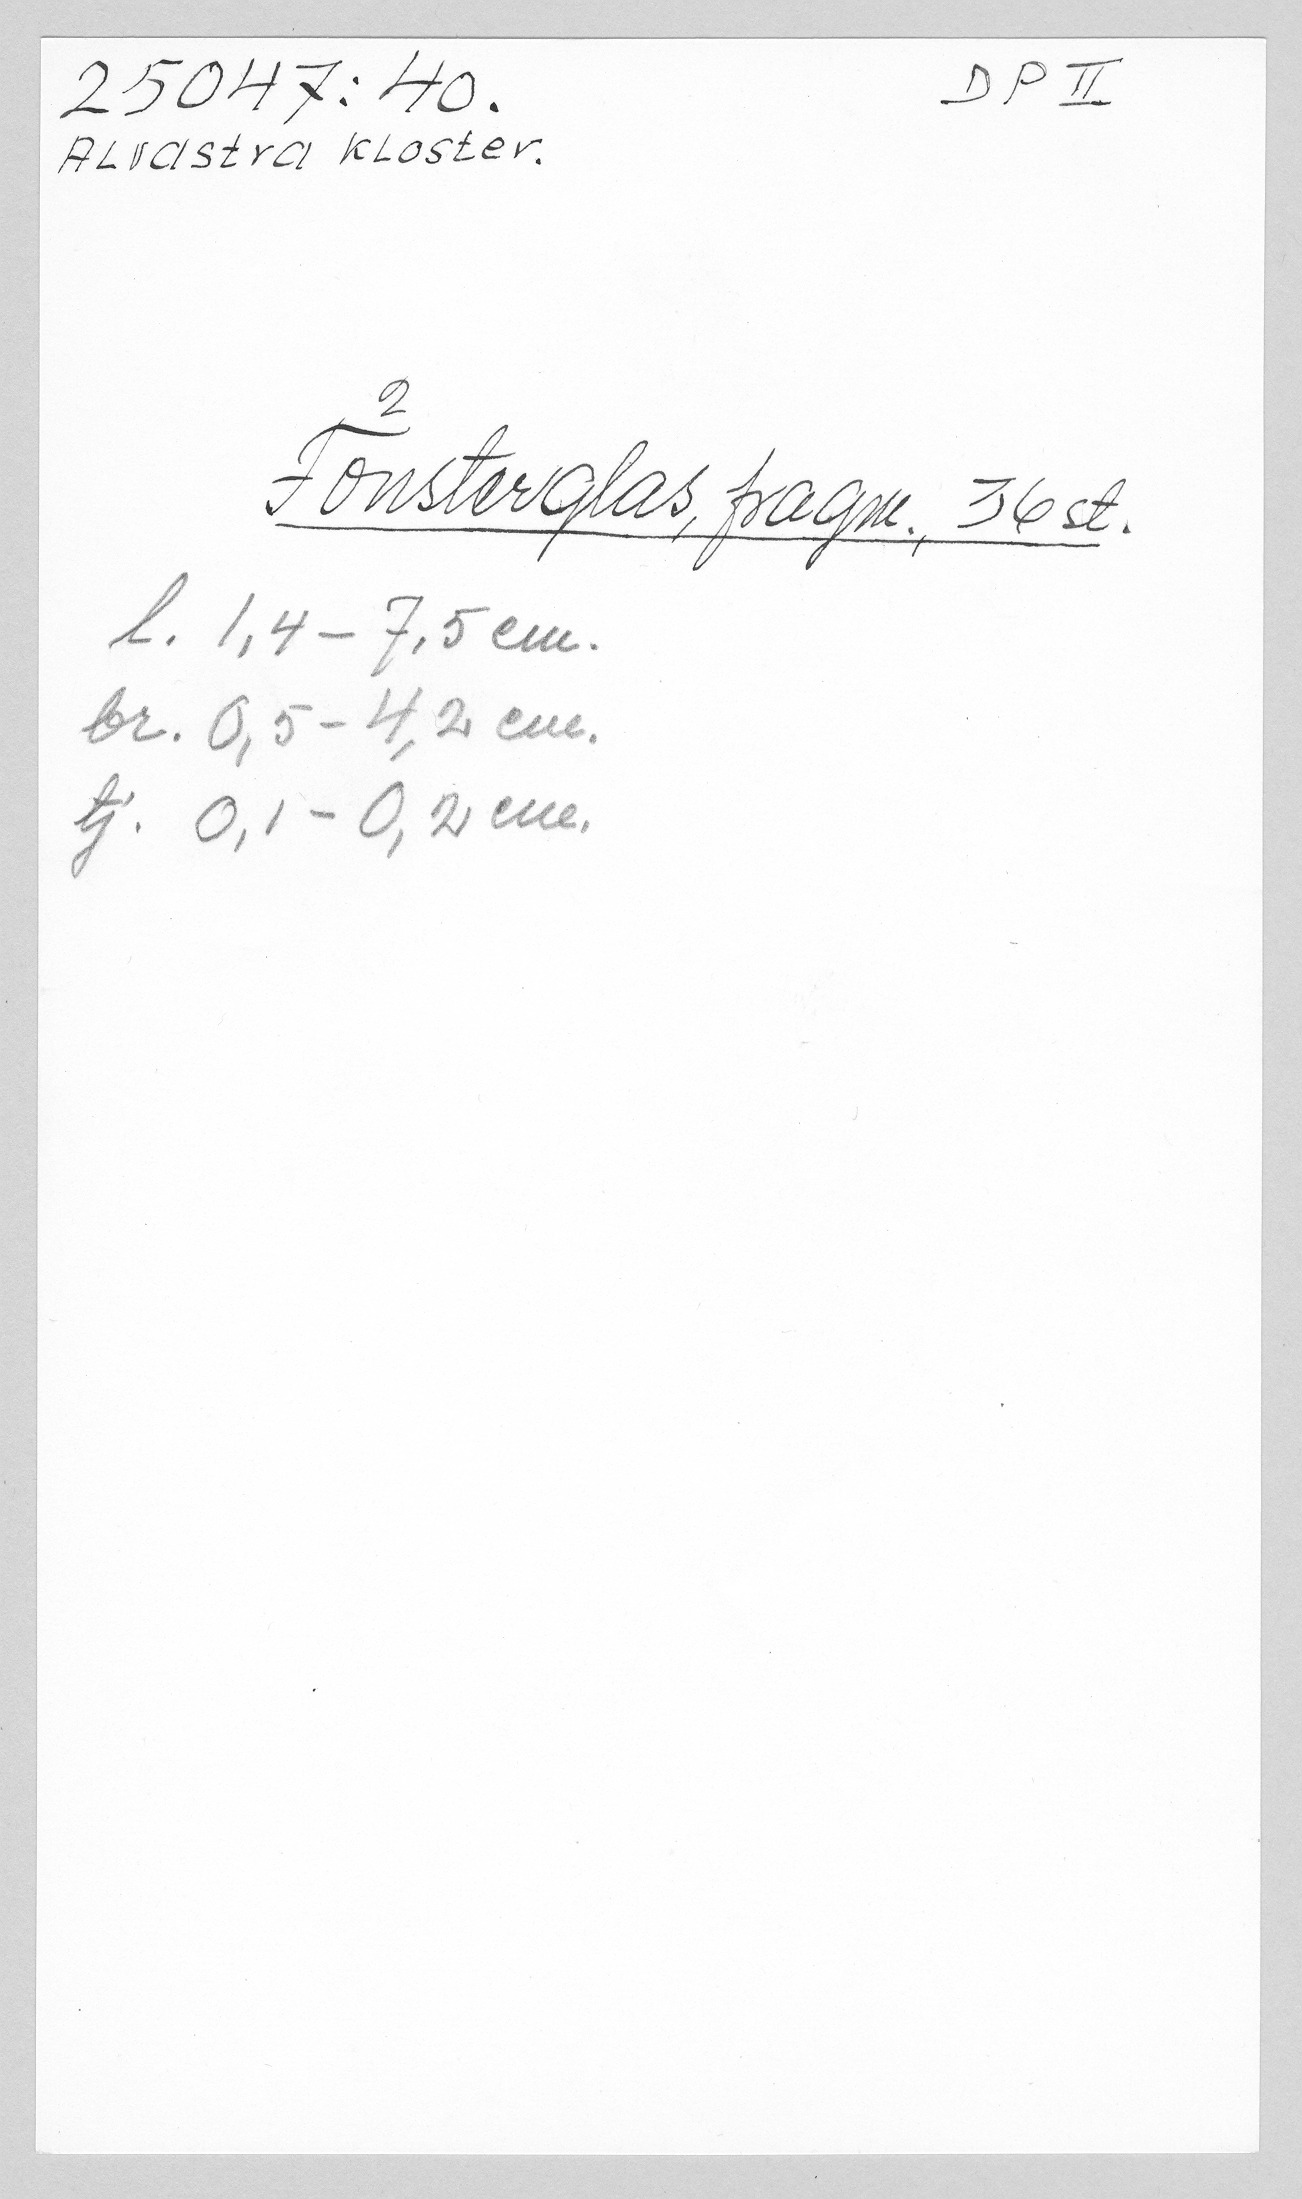 25047:40.
DP II
Alvastra kloster.
2
Fönsterglas, fragm., 36 st.
l. 1,4 – 7,5 cm.
br. 0,5 – 4,2 cm.
tj. 0,1 – 0,2 cm.